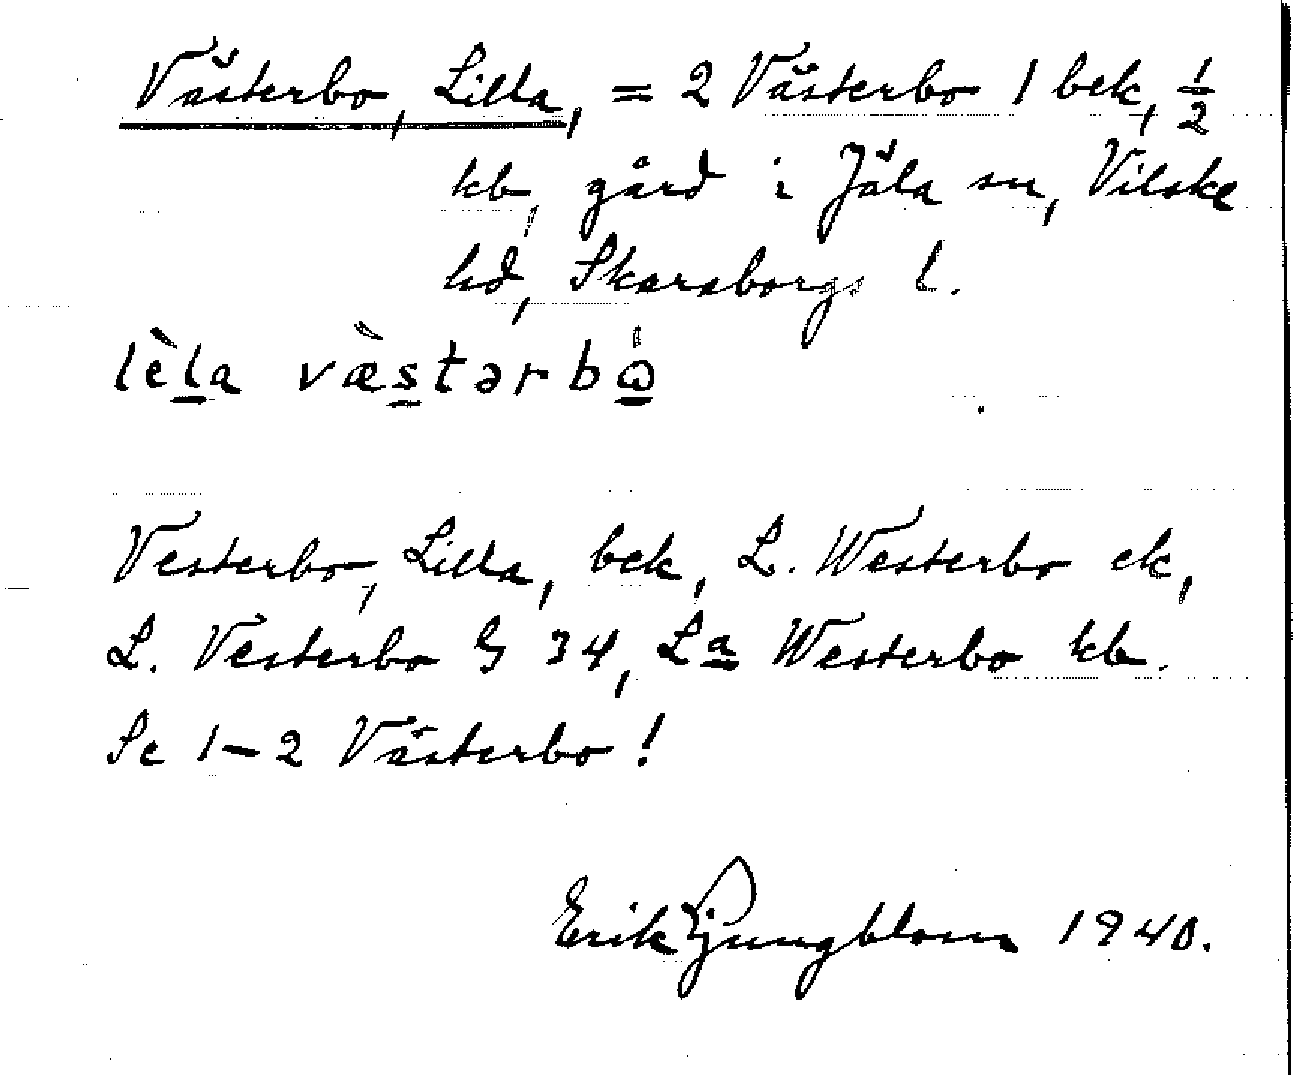 Västerbo, Lilla, = 2 Västerbo 1 bek, 1/2
kb, gård i Jäla sn, Vilske
hd, Skaraborgs l.
lèla væ̀stərbω̇
Vesterbo, Lilla, bek, L. Westerbo ek,
L. Vesterbo G 34, La Westerbo kb.
Se 1-2 Västerbo!
Erik Ljungblom 1940.